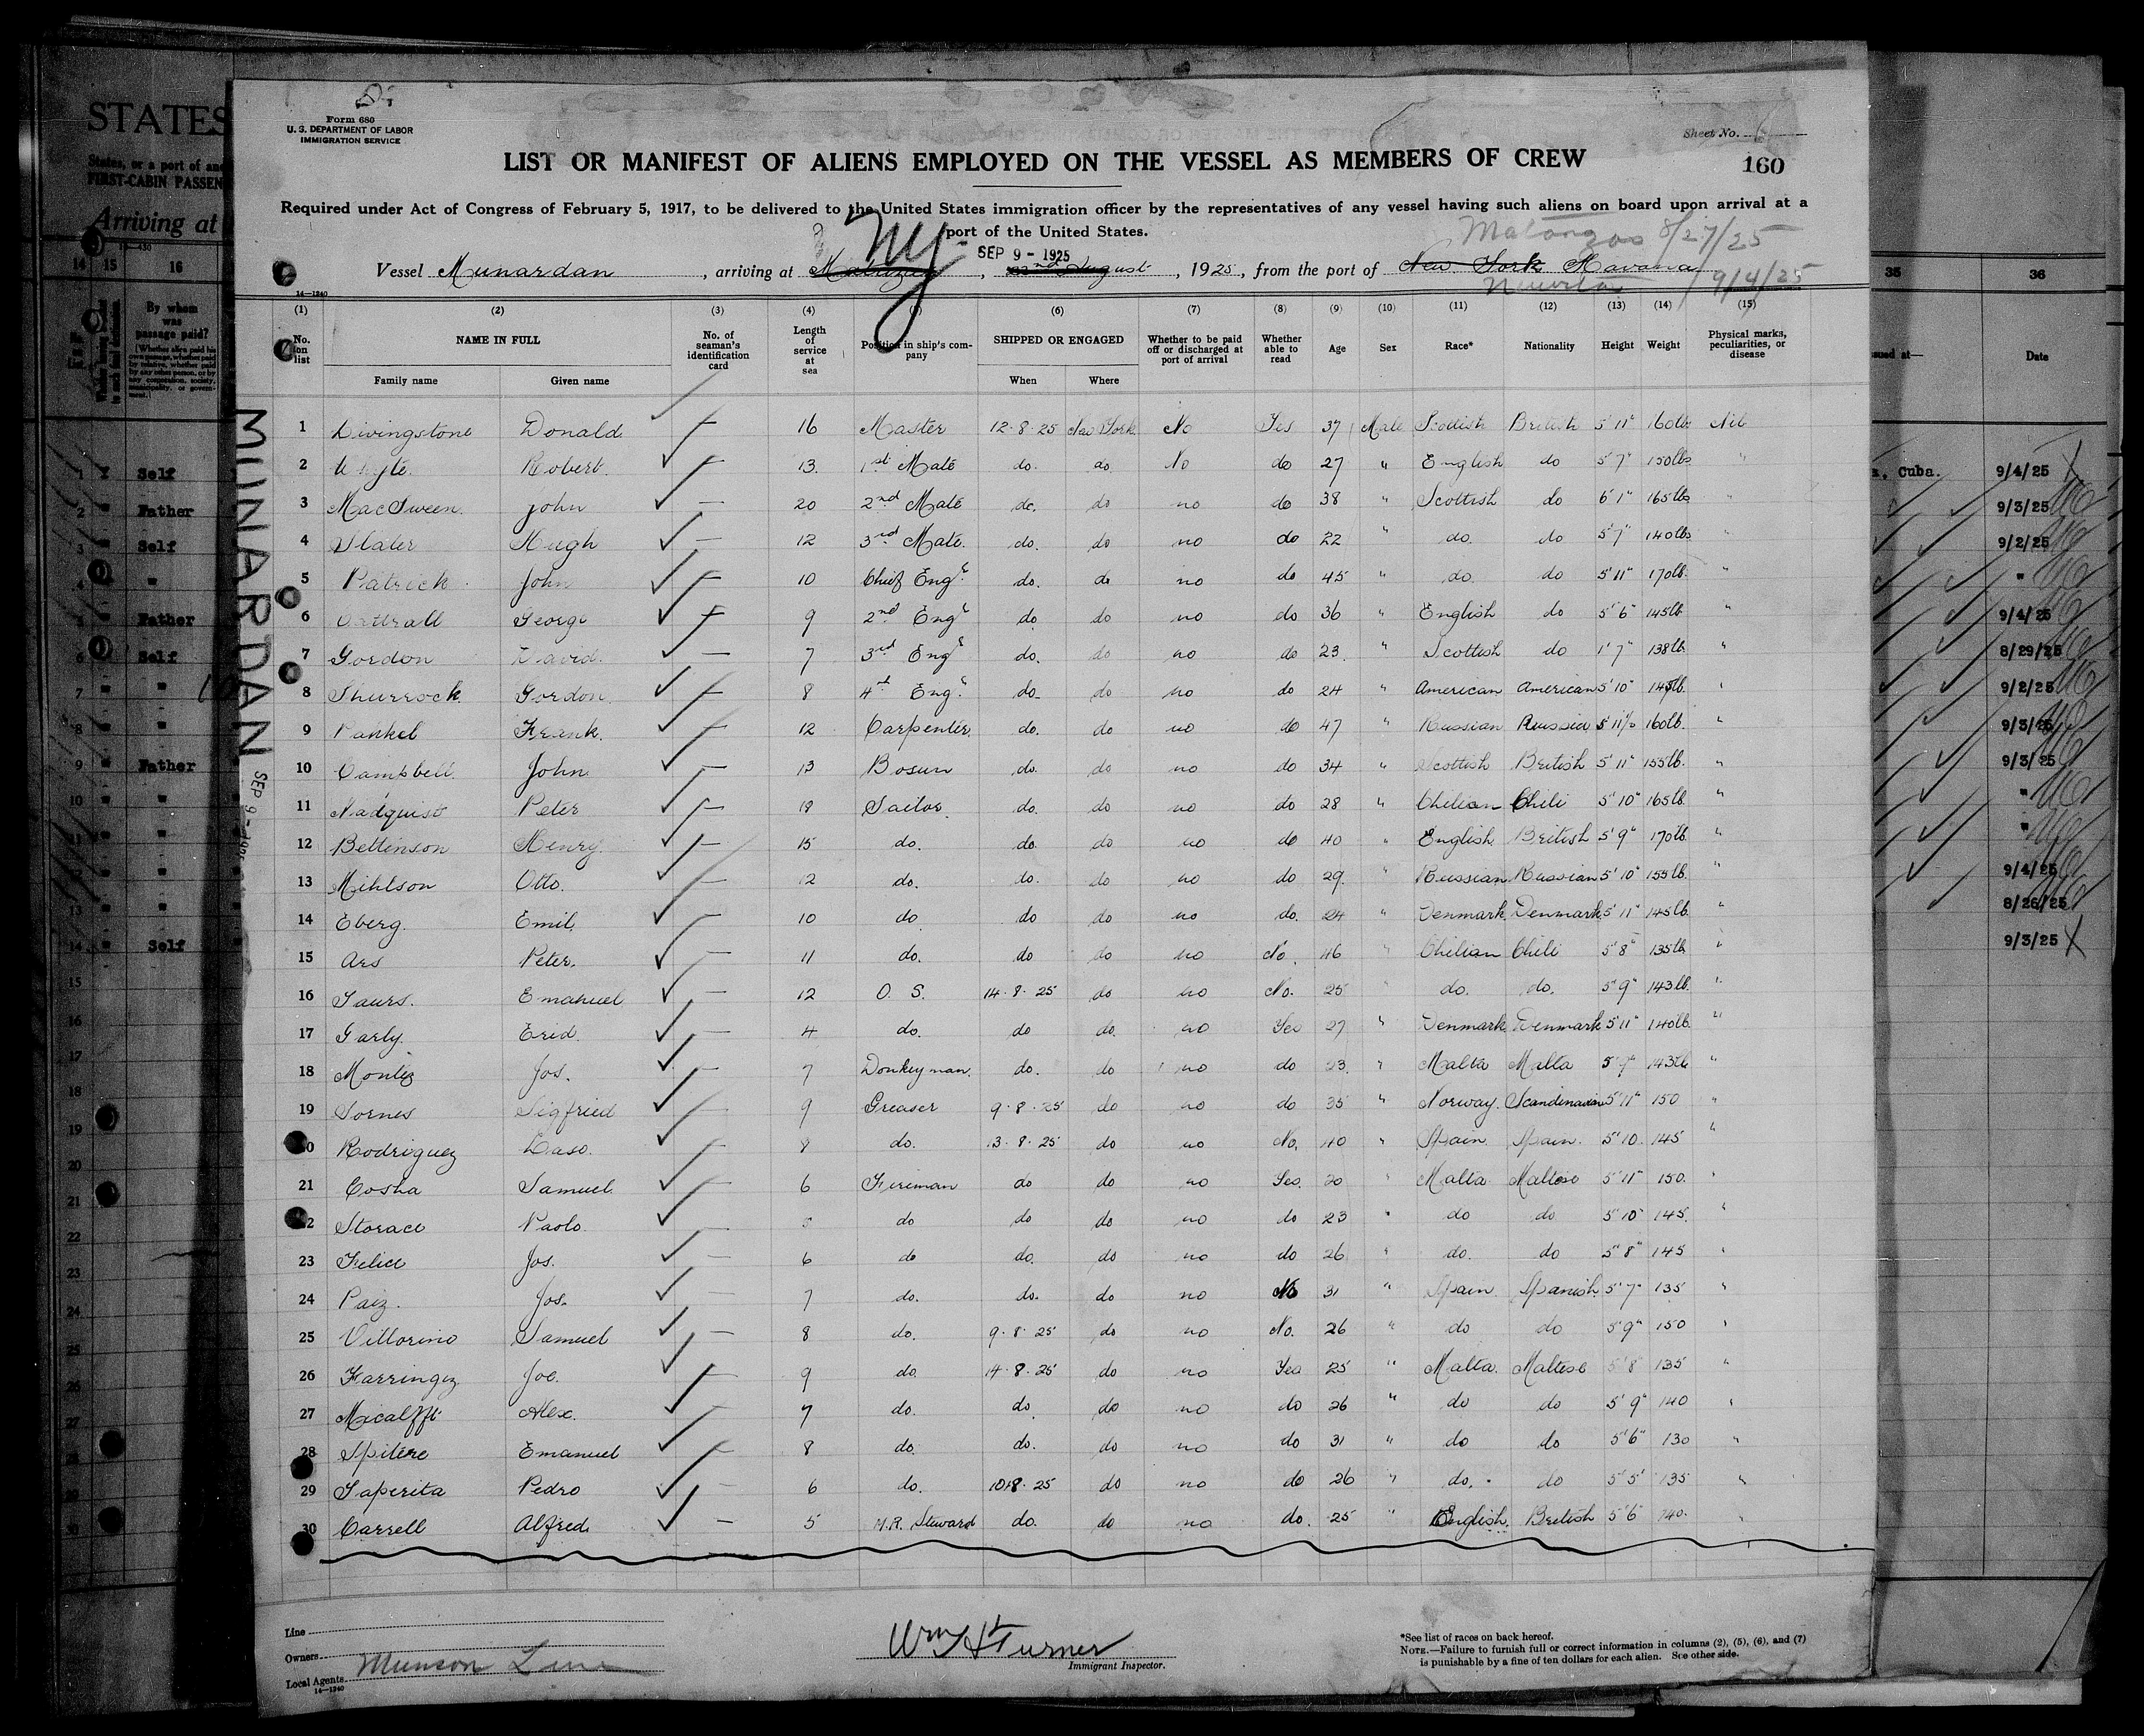 Form 680
U. S. DEPARTMENT OF LABOR
IMMIGRATION SERVICE
Sheet No.
160
LIST OR MANIFEST OF ALIENS EMPLOYED ON THE VESSEL AS MEMBERS OF CREW
Required under Act of Congress of February 5, 1917, to be delivered to the United States immigration officer by the representatives of any vessel having such aliens on board upon arrival at a
port of the United States.
Matanzas 8/27/25
Vessel Munardan, arriving at NY, SEP 9 - 1925 August, 1925, from the port of New York Havana
9/4/25
14-1240
(1) (2) (3) (4) (6) (7) (8) (9) (10) (11) (12) (13) (14) (15)
No. on list NAME IN FULL No. of seaman's identification card Length of service at sea Position in ship's company SHIPPED OR ENGAGED Whether to be paid off or discharged at port of arrival Whether able to read Age Sex Race* Nationality Height Weight Physical marks, peculiarities, or disease
Family name Given name When Where
1 Livingstone Donald 16 Master 12·8·25 New York No Yes 37 Male Scottish British 5'11" 160lbs Nil
2 Whyte Robert 13 1st Mate do. do No do 27 " English do 5'7" 150lbs "
3 MacSween John 20 2nd Mate do. do no do 38 " Scottish do 6'1" 165lbs "
4 Slater Hugh 12 3rd Mate. do. do no do 22 " do. do 5'7" 140lbs "
5 Patrick John 10 Chief Engr do. do no do 45 " do. do 5'11" 170lb. "
6 George 9 2nd Engr do. do no do 36 " English do 5'6" 145lb "
7 Gordon David. 7 3rd Engr do. do no do 23 " Scottish do 138lb "
8 Shurrock Gordon 8 4th Engr do. do no do 24 " American American 5'10" 145lb. "
9 Pankel Frank. 12 Carpenter. do. do no do 47 " Russian Russia 160lb. "
10 Campbell John 13 Bosun do. do no do 34 " Scottish British 5'11" 155lb. "
11 Nadquist Peter Sailor. do. do no do 28 " Chilian Chili 5'10" 165lb. "
12 Bettinson Henry 15 do. do. do no do 40 " English British 5'9" 170lb. "
13 Mihlson Otto. 12 do. do. do no do 29. " Russian Russian 5'10" 155lb. "
14 Eberg. Emil 10 do do do no do. 24 " Denmark Denmark 5'11" 145lb. "
15 Ars Peter. 11 do. do do no No. 46 " Chilian Chili 5'8" 135lb "
16 Saurs. Emanuel 12 O. S. 14·8·25 do no No. 25 " do. do. 5'9" 143lb. "
17 Garly. Erid. 4 do. do do. no Yes 27 " Denmark Denmark 5'11" 140lb. "
18 Montiz Jos. 7 Donkeyman. do. do no do 23. " Malta Malta 143lb "
19 Sornes Sigfried 9 Greaser 9·8·25 do no do 35 " Norway. Scandinavian 5'11" 150 "
20 Rodriguez Laso. 8 do. 13·8·25 do no No. 40 " Spain Spain. 5'10. 145 "
21 Cosha Samuel. 6 Fireman do do no Yes. 20 " Malta Maltese 5'11" 150. "
22 Storace Paolo. do do do no do 23 " do do 5'10" 145. "
23 Felice Jos. 6 do do. do no do 26 " do. do 5'8" 145 "
24 Paiz. Jos. 7 do. do. do no No 31 " Spain. Spanish 5'7" 135 "
25 Vittorino Samuel 8 do. 9·8·25 do no No. 26 " do do 5'9" 150 "
26 Farringez Joe. 9 do. 14·8·25 do no Yes 25 " Malta. Maltese 5'8" 135 "
27 Micalffi Alex. 7 do. do. do no do 26 " do do 5'9" 140 "
28 Spitere Emanuel 8 do. do. do no do 31 " do do 5'6" 130 "
29 Saperita Pedro 6 do. 10·8·25 do no do 26 " do. do 5'5" 135 "
30 Carrell Alfred 5 M.R. Steward do. do no do. 25 " English. British 5'6" 140. "
MUNARDAN
SEP 9 - 1925
Line
Owners
Local Agents Munson Line
14-1240
Wm H Turner
Immigrant Inspector.
*See list of races on back hereof.
NOTE.—Failure to furnish full or correct information in columns (2), (5), (6), and (7)
is punishable by a fine of ten dollars for each alien. See other side.
STATES
States, or a port of
FIRST-CABIN PASSEN
Arriving at
14 15 16
By whom was passage paid?
1 Self
2 Father
3 Self
4 "
5 Father
6 Self
7 "
8 "
9 Father
10 "
11 "
12 "
13 "
14 Self
15
16
17
18
19
20
21
22
23
24
25
26
27
28
29
30
35 36
Date
Cuba. 9/4/25
9/3/25
9/2/25
"
9/4/25
8/29/25
9/2/25
9/3/25
9/3/25
"
"
9/4/25
8/26/25
9/3/25